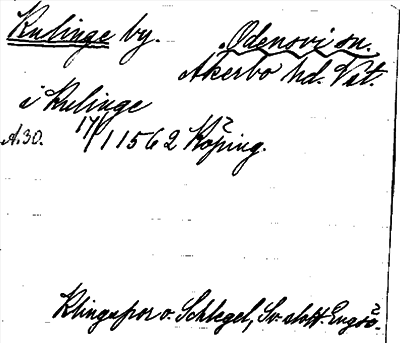 Kulinge by. Odensvi sn.
Åkerbo hd. Vstm.
i Kulinge
A. 30. 17/1 1562 Köping.
Klingspor o. Schlegel, Sv. slott. Engsö.